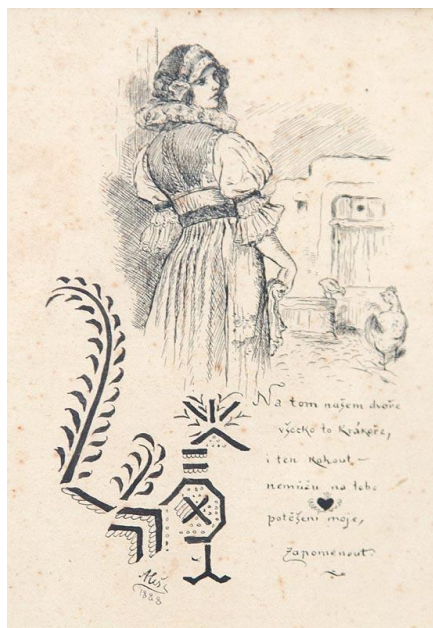 Na tom našem dvoře
všecko to krákoře,
i ten kohout –
nemůžu na tebe
potěšení moje,
zapomenout.
Aleš
1888